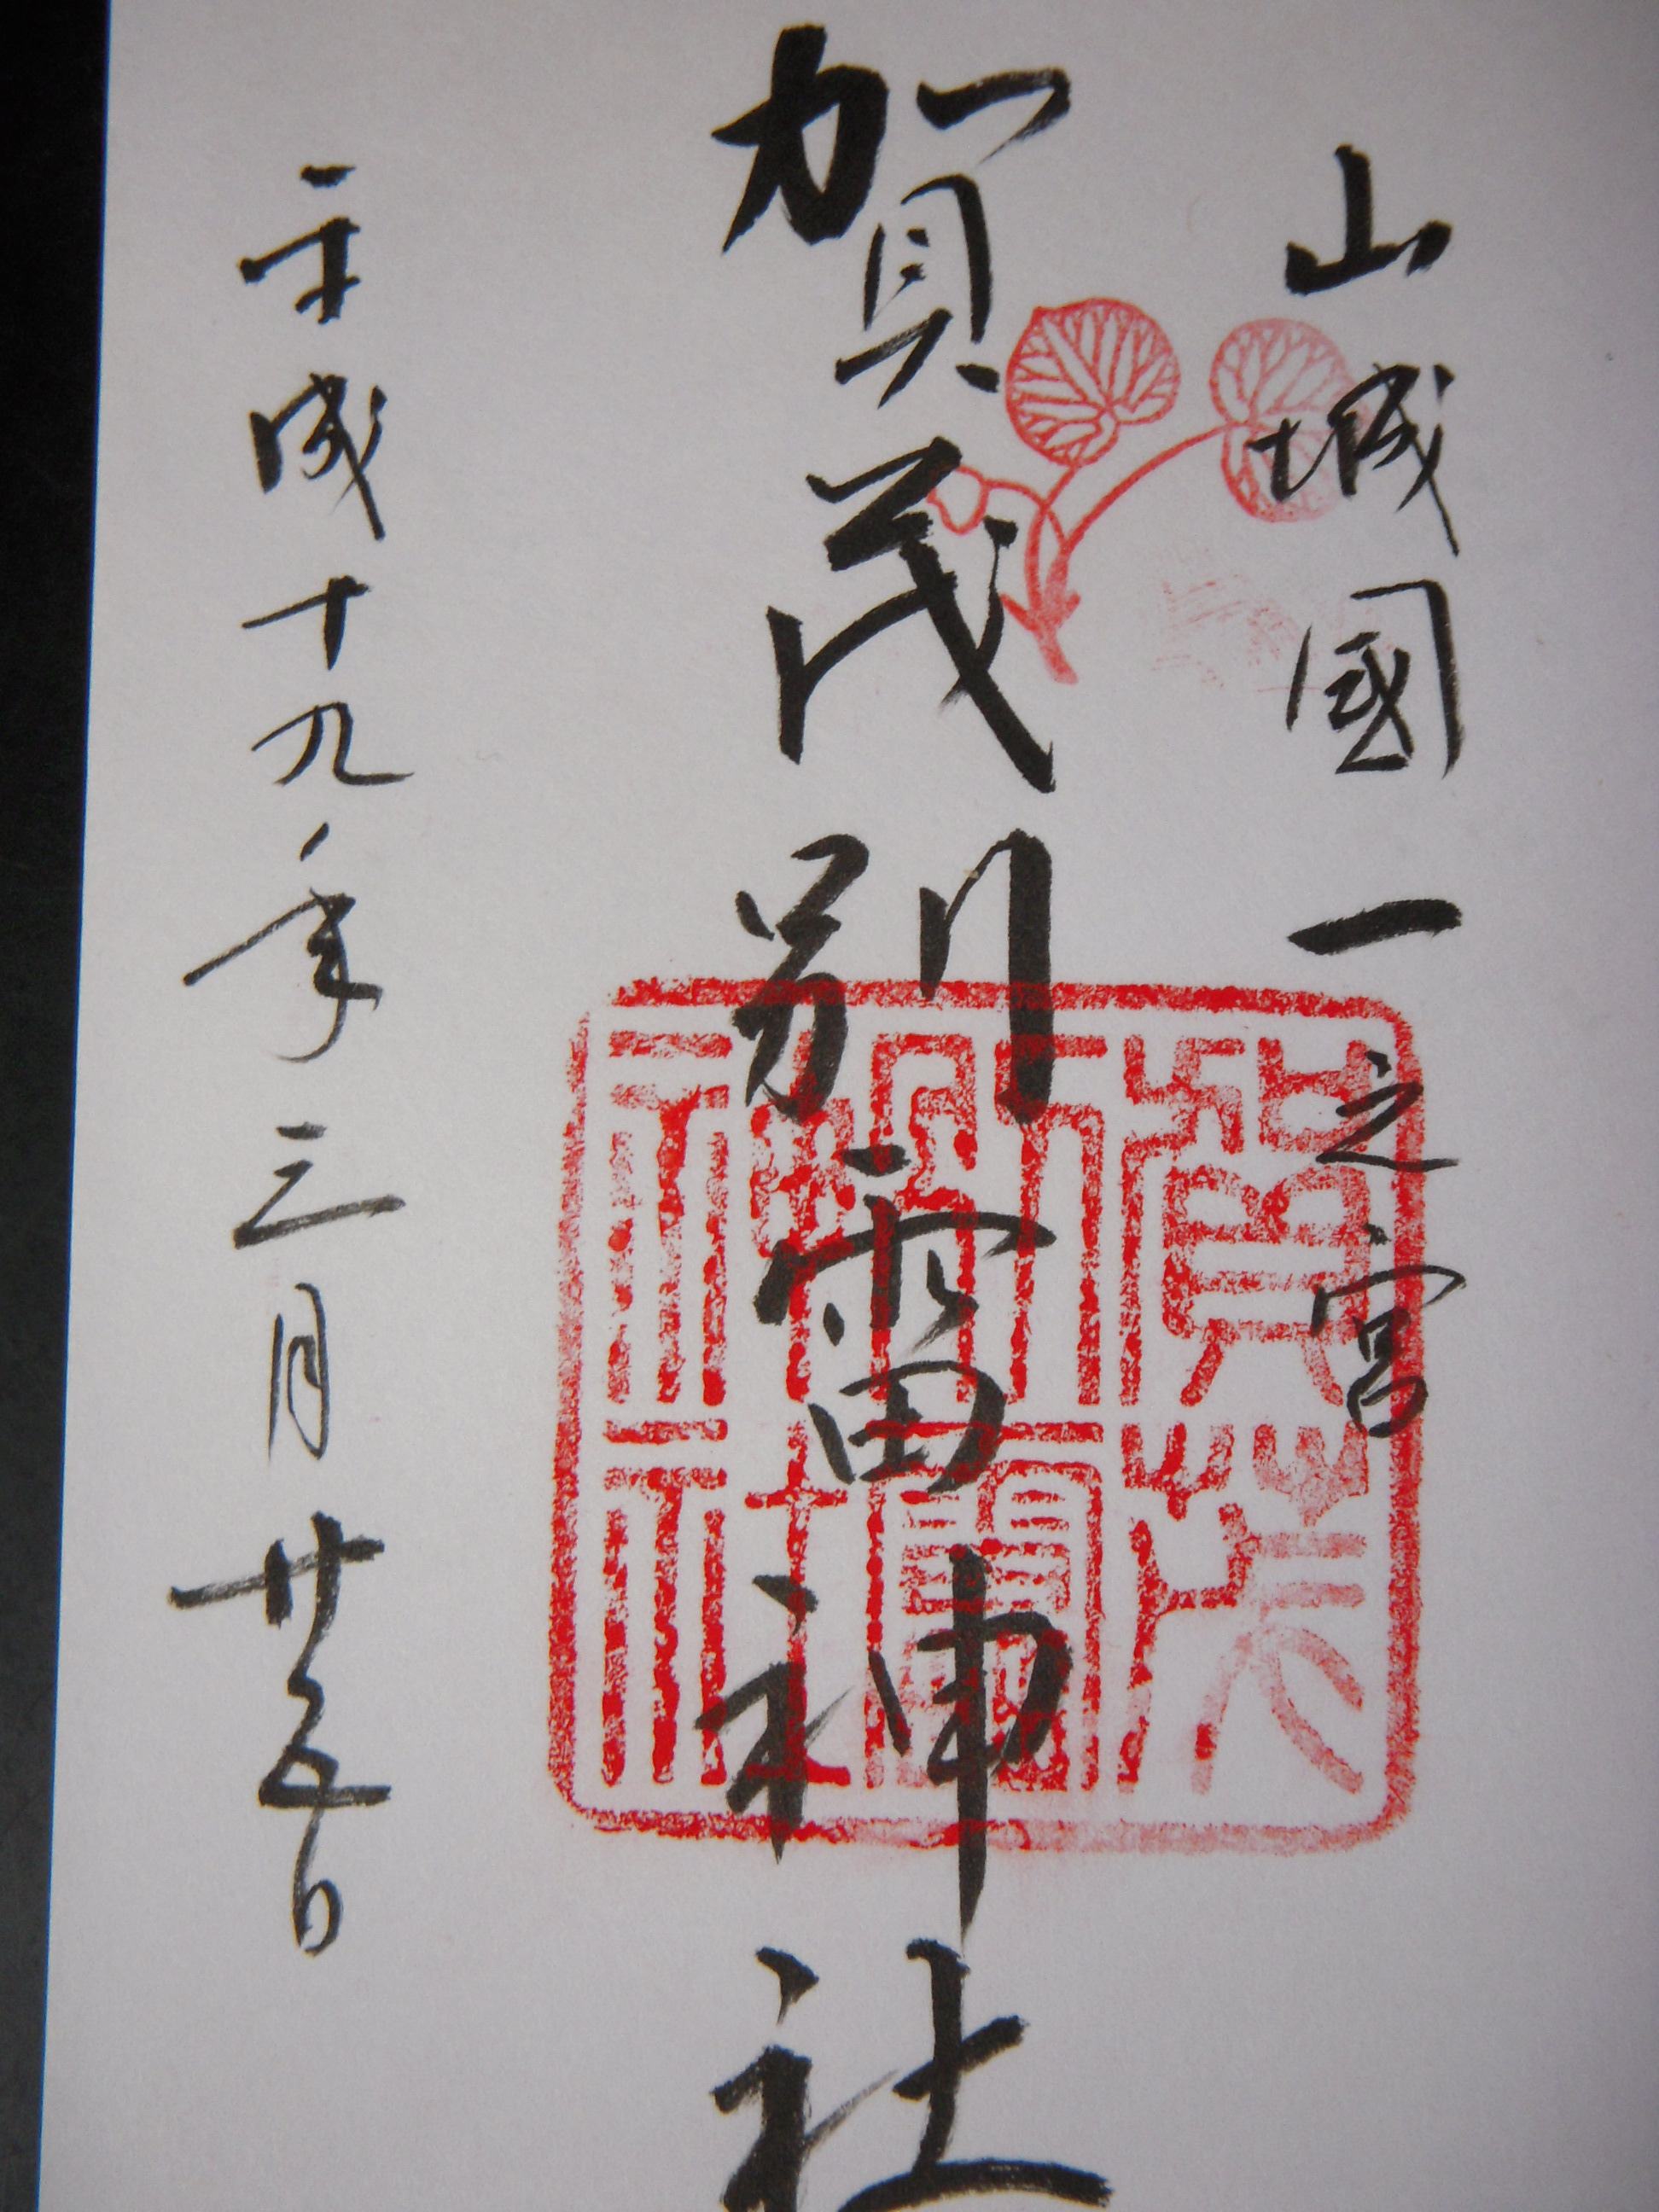 山城國一之宮
賀茂別雷神社
平成十九年三月廿五日
賀茂
別雷
神社